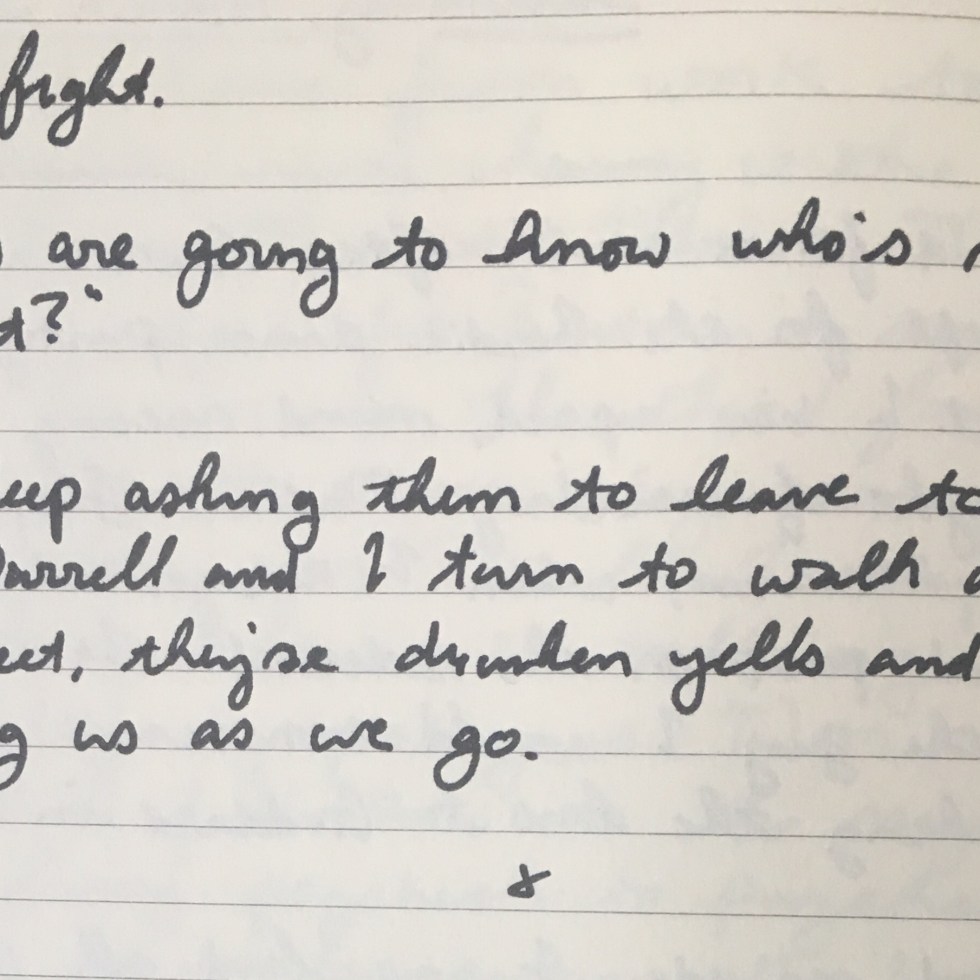 fight.
are going to know who's
t?"
eep asking them to leave to
Darrell and I turn to walk
eet, they're drunken yells and
g us as we go.
&